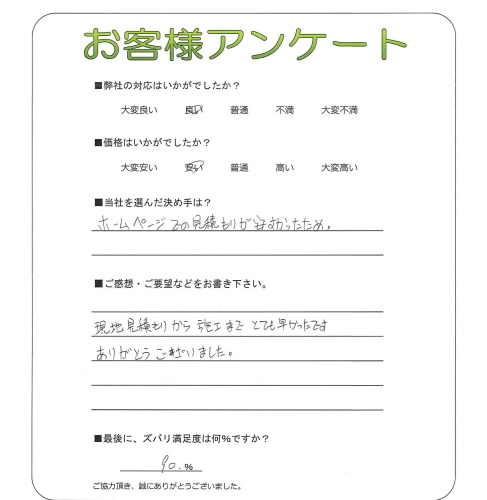 お客様アンケート
■弊社の対応はいかがでしたか？
大変良い 良い 普通 不満 大変不満
■価格はいかがでしたか？
大変安い 安い 普通 高い 大変高い
■当社を選んだ決め手は？
ホームページでの見積もりが安すかったため。
■ご感想・ご要望などをお書き下さい。
現地見積もりから施工まで とても早かったです
ありがとうございました。
■最後に、ズバリ満足度は何%ですか？
90.%
ご協力頂き、誠にありがとうございました。